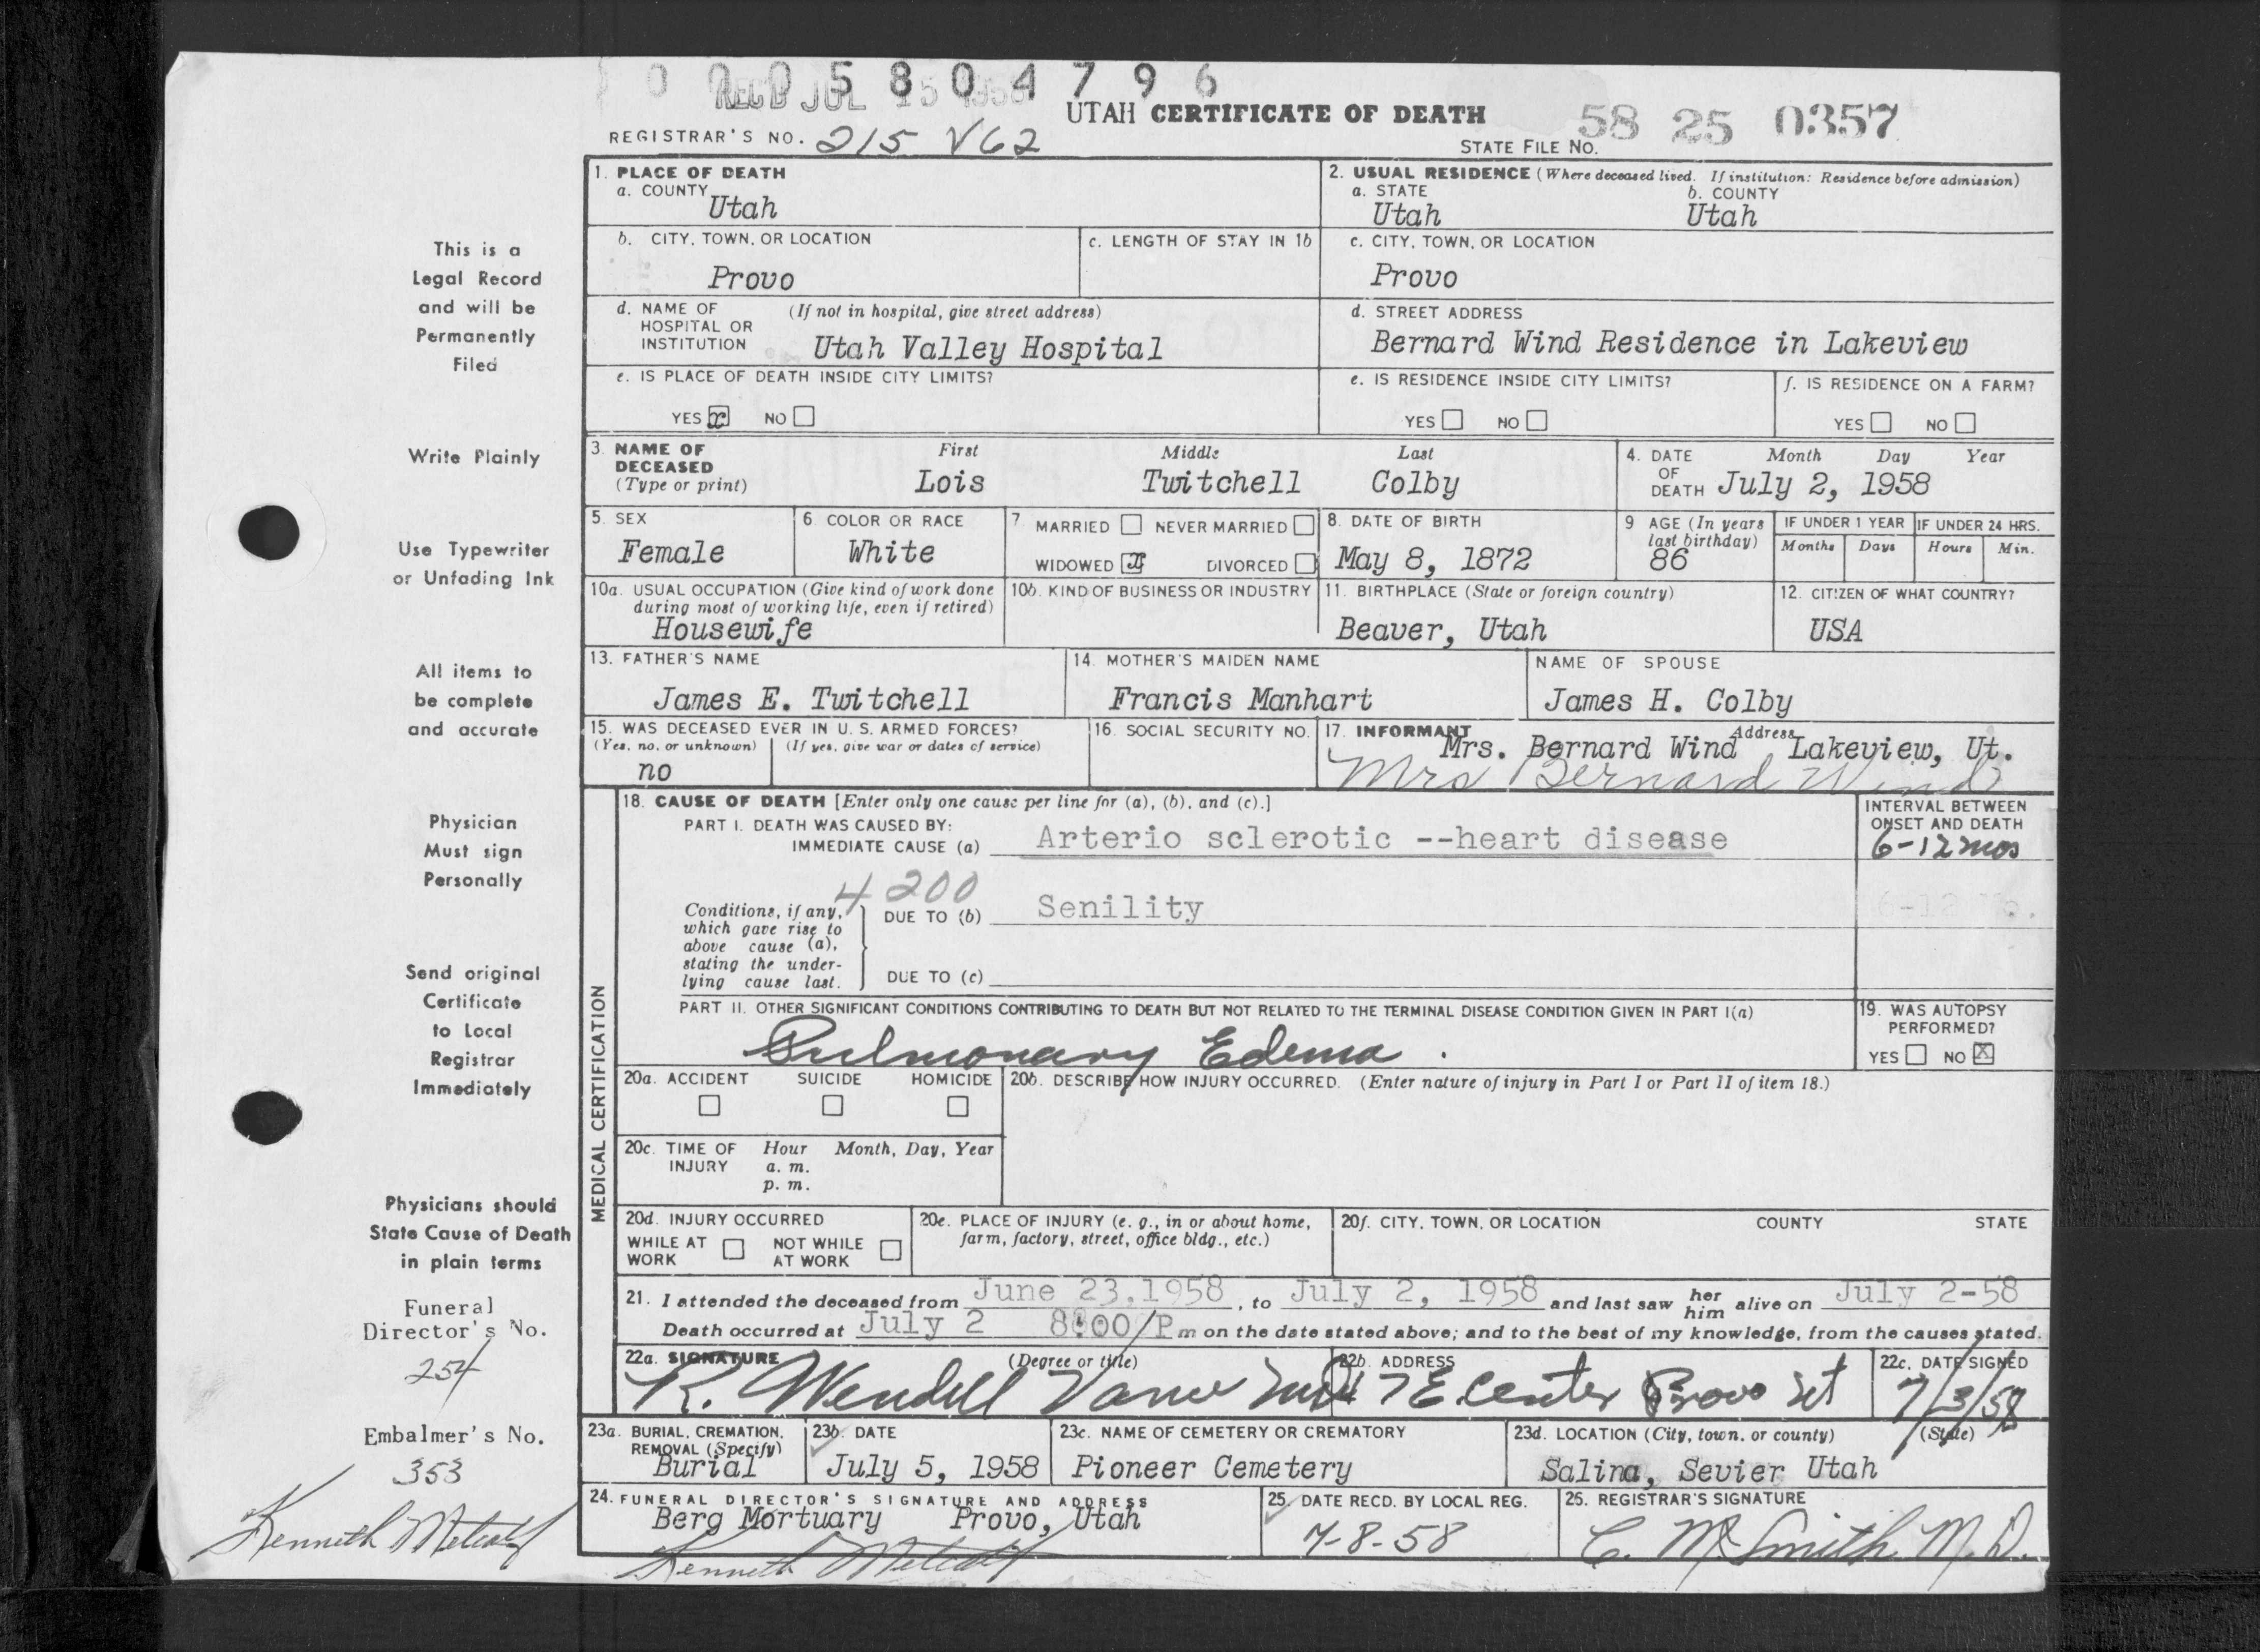 0 0 0 5 8 0 4 7 9 6
REC'D JUL 15 1958
UTAH CERTIFICATE OF DEATH
58 25 0357
REGISTRAR'S NO. 215 V62
STATE FILE NO.
1. PLACE OF DEATH
a. COUNTY
Utah
2. USUAL RESIDENCE (Where deceased lived. If institution: Residence before admission)
a. STATE b. COUNTY
Utah Utah
b. CITY, TOWN, OR LOCATION
Provo
c. LENGTH OF STAY IN 1b
c. CITY, TOWN, OR LOCATION
Provo
d. NAME OF HOSPITAL OR INSTITUTION (If not in hospital, give street address)
Utah Valley Hospital
d. STREET ADDRESS
Bernard Wind Residence in Lakeview
e. IS PLACE OF DEATH INSIDE CITY LIMITS?
YES x NO
e. IS RESIDENCE INSIDE CITY LIMITS?
YES NO
f. IS RESIDENCE ON A FARM?
YES NO
3. NAME OF DECEASED (Type or print)
First Middle Last
Lois Twitchell Colby
4. DATE OF DEATH Month Day Year
July 2, 1958
5. SEX
Female
6 COLOR OR RACE
White
7. MARRIED NEVER MARRIED
WIDOWED x DIVORCED
8. DATE OF BIRTH
May 8, 1872
9 AGE (In years last birthday)
86
IF UNDER 1 YEAR IF UNDER 24 HRS.
Months Days Hours Min.
10a. USUAL OCCUPATION (Give kind of work done during most of working life, even if retired)
Housewife
10b. KIND OF BUSINESS OR INDUSTRY
11. BIRTHPLACE (State or foreign country)
Beaver, Utah
12. CITIZEN OF WHAT COUNTRY?
USA
13. FATHER'S NAME
James E. Twitchell
14. MOTHER'S MAIDEN NAME
Francis Manhart
NAME OF SPOUSE
James H. Colby
15. WAS DECEASED EVER IN U. S. ARMED FORCES?
(Yes, no, or unknown) (If yes, give war or dates of service)
no
16. SOCIAL SECURITY NO.
17. INFORMANT Address
Mrs. Bernard Wind Lakeview, Ut.
Mrs Bernard Wind
MEDICAL CERTIFICATION
18. CAUSE OF DEATH [Enter only one cause per line for (a), (b), and (c).]
PART I. DEATH WAS CAUSED BY:
IMMEDIATE CAUSE (a) Arterio sclerotic --heart disease
INTERVAL BETWEEN ONSET AND DEATH
6-12 mos
4200
Conditions, if any, which gave rise to above cause (a), stating the underlying cause last.
DUE TO (b) Senility
DUE TO (c)
PART II. OTHER SIGNIFICANT CONDITIONS CONTRIBUTING TO DEATH BUT NOT RELATED TO THE TERMINAL DISEASE CONDITION GIVEN IN PART I(a)
Pulmonary Edema.
19. WAS AUTOPSY PERFORMED?
YES NO X
20a. ACCIDENT SUICIDE HOMICIDE
20b. DESCRIBE HOW INJURY OCCURRED. (Enter nature of injury in Part I or Part II of item 18.)
20c. TIME OF INJURY Hour Month, Day, Year
a. m.
p. m.
20d. INJURY OCCURRED
WHILE AT WORK NOT WHILE AT WORK
20e. PLACE OF INJURY (e. g., in or about home, farm, factory, street, office bldg., etc.)
20f. CITY, TOWN, OR LOCATION COUNTY STATE
21. I attended the deceased from June 23,1958, to July 2, 1958 and last saw her him alive on July 2-58
Death occurred at July 2 8:00/P m on the date stated above; and to the best of my knowledge, from the causes stated.
22a. SIGNATURE (Degree or title)
R. Wendell Vance MD
22b. ADDRESS
E Center Provo Ut
22c. DATE SIGNED
7/3/58
23a. BURIAL, CREMATION, REMOVAL (Specify)
Burial
23b. DATE
July 5, 1958
23c. NAME OF CEMETERY OR CREMATORY
Pioneer Cemetery
23d. LOCATION (City, town, or county) (State)
Salina, Sevier Utah
24. FUNERAL DIRECTOR'S SIGNATURE AND ADDRESS
Berg Mortuary Provo, Utah
Kenneth Metcalf
25. DATE RECD. BY LOCAL REG.
7-8-58
26. REGISTRAR'S SIGNATURE
C. M. Smith M.D.
This is a
Legal Record
and will be
Permanently
Filed
Write Plainly
Use Typewriter
or Unfading Ink
All items to
be complete
and accurate
Physician
Must sign
Personally
Send original
Certificate
to Local
Registrar
Immediately
Physicians should
State Cause of Death
in plain terms
Funeral
Director's No.
254
Embalmer's No.
353
Kenneth Metcalf